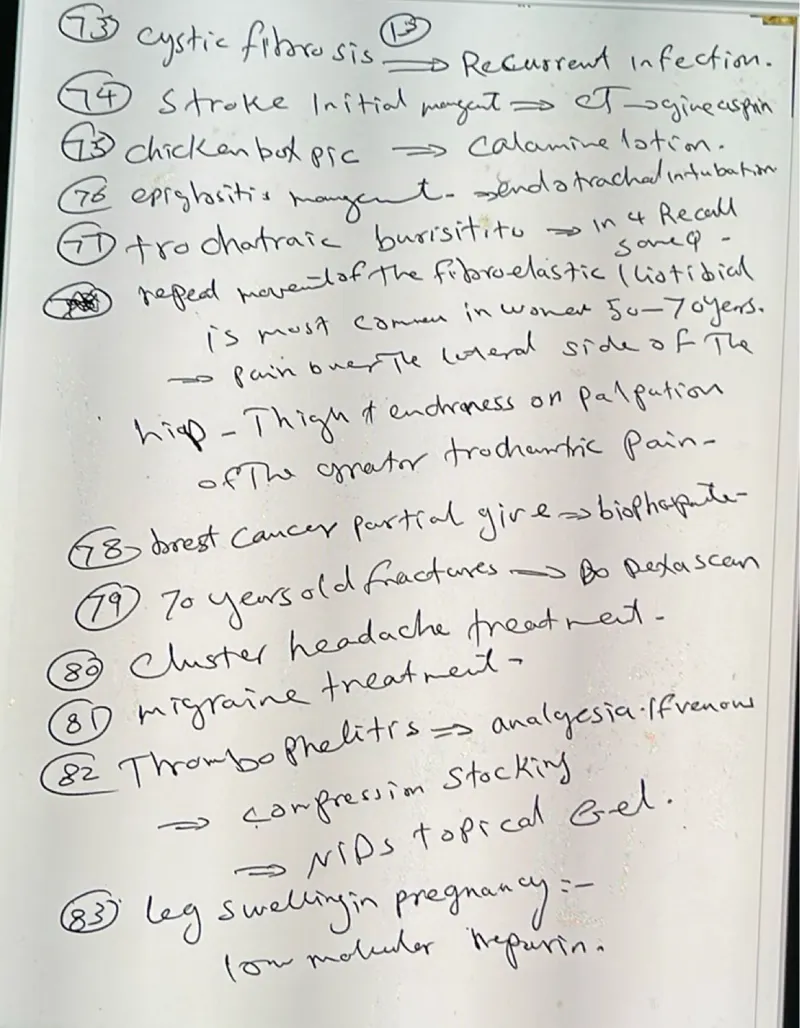 13
73 cystic fibrosis ⇒ Recurrent infection.
74 Stroke Initial mangent ⇒ CT → give aspirin
75 chicken box pic ⇒ Calamine lotion.
76 epiglositis mangement - → endotrachal intubation
77 trochatraic burisitito → in 4 Recall
some q -
repeed movement of the fibroelastic Iliotibial
is most common in women 50-70 yers.
→ pain over the lateral side of The
hiap - Thigh tendrness on palpution
of The greator trochantric pain -
78 brest cancer partial give ⇒ biophospate -
79 70 years old fractures → Do Dexa scan
80 Cluster headache treatment -
81 migraine treatment -
82 Thrombophelitis ⇒ analgesia. If venous
⇒ compression stocking
⇒ NIDs topical Gel.
83 leg swelling in pregnancy :-
low moluler heparin.